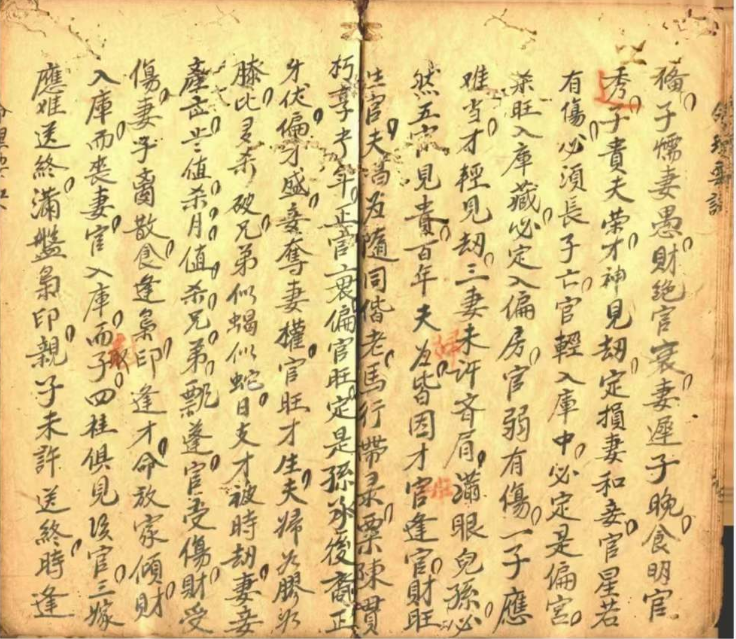 子懦妻愚財絕官衰妻遲子晚食明官
秀子貴夫荣才神見劫定損妻和妾官星若
有傷必須長子亡官輕入庫中必定是偏宮
杀旺入庫藏必定入偏房官弱有傷一子應
难当才輕見劫三妻未许齐眉滿眼兒孫必
然五宮見貴百年夫婦皆因才官逢官財旺
生官夫隨同偕老馬行帶粟陳貫
朽享年正官衰偏官旺定是孫承後裔正
才伏偏才盛妾奪妻權官旺才生夫婦如膠如
膝比肩杀破兄弟似蝎似蛇日支才被時劫妻妾
產亡年值杀月值杀兄弟飄蓬官受傷財受
傷妻子离散食逢梟印逢才命放家傾財
入庫而丧妻官入庫而子四柱俱見官三嫁
應难送終滿盤梟印親子未許送終時逢